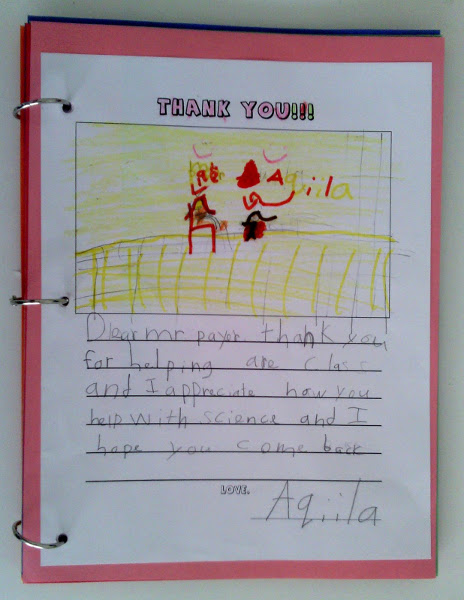 THANK YOU!!!
Aqiila
Dear mr payer thank you
for helping are class
and I appreciate how you
help with science and I
hope you come back
LOVE,
Aqiila